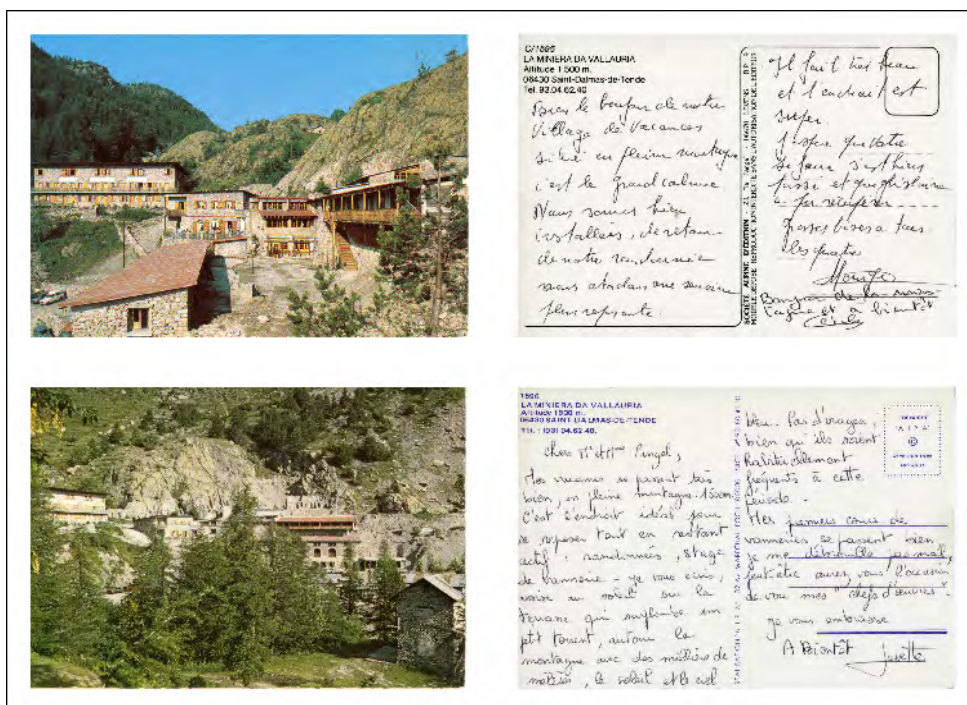 C/1595
LA MINIERA DA VALLAURIA
Altitude 1 500 m.
06430 Saint-Dalmas-de-Tende
Tel. 93.04.62.40
Bien le bonjour de notre
Village de Vacances
situé en pleine montagne
c'est le grand calme
Nous sommes bien
installés, de retour
de notre randonnée
nous attendons une semaine
plus reposante.
SOCIÉTÉ ALPINE D'ÉDITION
Il fait très beau
et l'endroit est
super.
passé et que
récupérer
Grosses bises à tous
les quatre
Bonjour de la mon-
tagne et à bientôt
Cécile
1595
LA MINIERA DA VALLAURIA
Altitude 1500 m.
06430 SAINT-DALMAS-DE-TENDE
Tél. : (93) 04.62.40.
Chers Mr et Mme
Mes vacances se passent très
bien, en pleine montagne. 1500m.
C'est l'endroit idéal pour
se reposer tout en restant
actif, randonnées, stage
de vannerie - je vous écris,
assise au soleil sur la
terrasse qui surplombe un
ptt torrent, autour la
montagne avec des milliers de
mélèzes, le soleil et le ciel
bleu. Pas d'orages,
bien qu'ils soient
habituellement
fréquents à cette
période.
Mes premiers cours de
vanneries se passent bien
je me débrouille pas mal,
peut-être aurez vous l'occasion
de voir mes "chefs d'œuvres".
je vous embrasse
A Bientôt
Josette